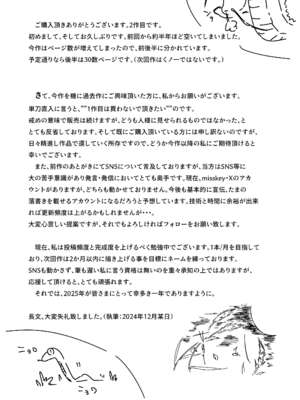 ご購入頂きありがとうございます。2作目です。
初めまして、そしてお久しぶりです。前回から約半年ほど空いてしまいました。
今作はページ数が増えてしまったので、前後半に分かれています。
予定通りなら後半は30数ページです。(次回作はミノーではないです。)
さて、今作を機に過去作にご興味頂いた方に、私からお願いがございます。
単刀直入に言うと、""1作目は買わないで頂きたい""のです。
戒めの意味で販売は続けますが、どうも人様に見せられるものではなかった、と
とても反省しております。そして既にご購入頂いている方には申し訳ないのですが、
日々精進し作品で直していく所存ですので、どうか今作以降の私にご期待頂けると
幸いでございます。
また、前作のあとがきにてSNSについて言及しておりますが、当方はSNS等に
大の苦手意識があり発言・発信においてとても奥手です。現在、misskey・Xのアカ
ウントがありますが、どちらも動かせておりません。今後も基本的に宣伝、たまの
落書きを載せるアカウントになるだろうと予想しています。技術と時間に余裕が出来
れば更新頻度は上がるかもしれませんが・・・。
大変心苦しい提案ですが、それでもよろしければフォローをお願い致します。
現在、私は投稿頻度と完成度を上げるべく勉強中でございます。1本/月を目指して
おり、次回作は2か月以内に描き上げる事を目標にネームを練っております。
SNSも動かさず、筆も遅い私に言う資格は無いのを重々承知の上ではありますが、
応援して頂けると、とても頑張れます。
それでは、2025年が皆さまにとって幸多き一年でありますように。
長文、大変失礼致しました。(執筆:2024年12月某日)
ニョロ
ニョロ